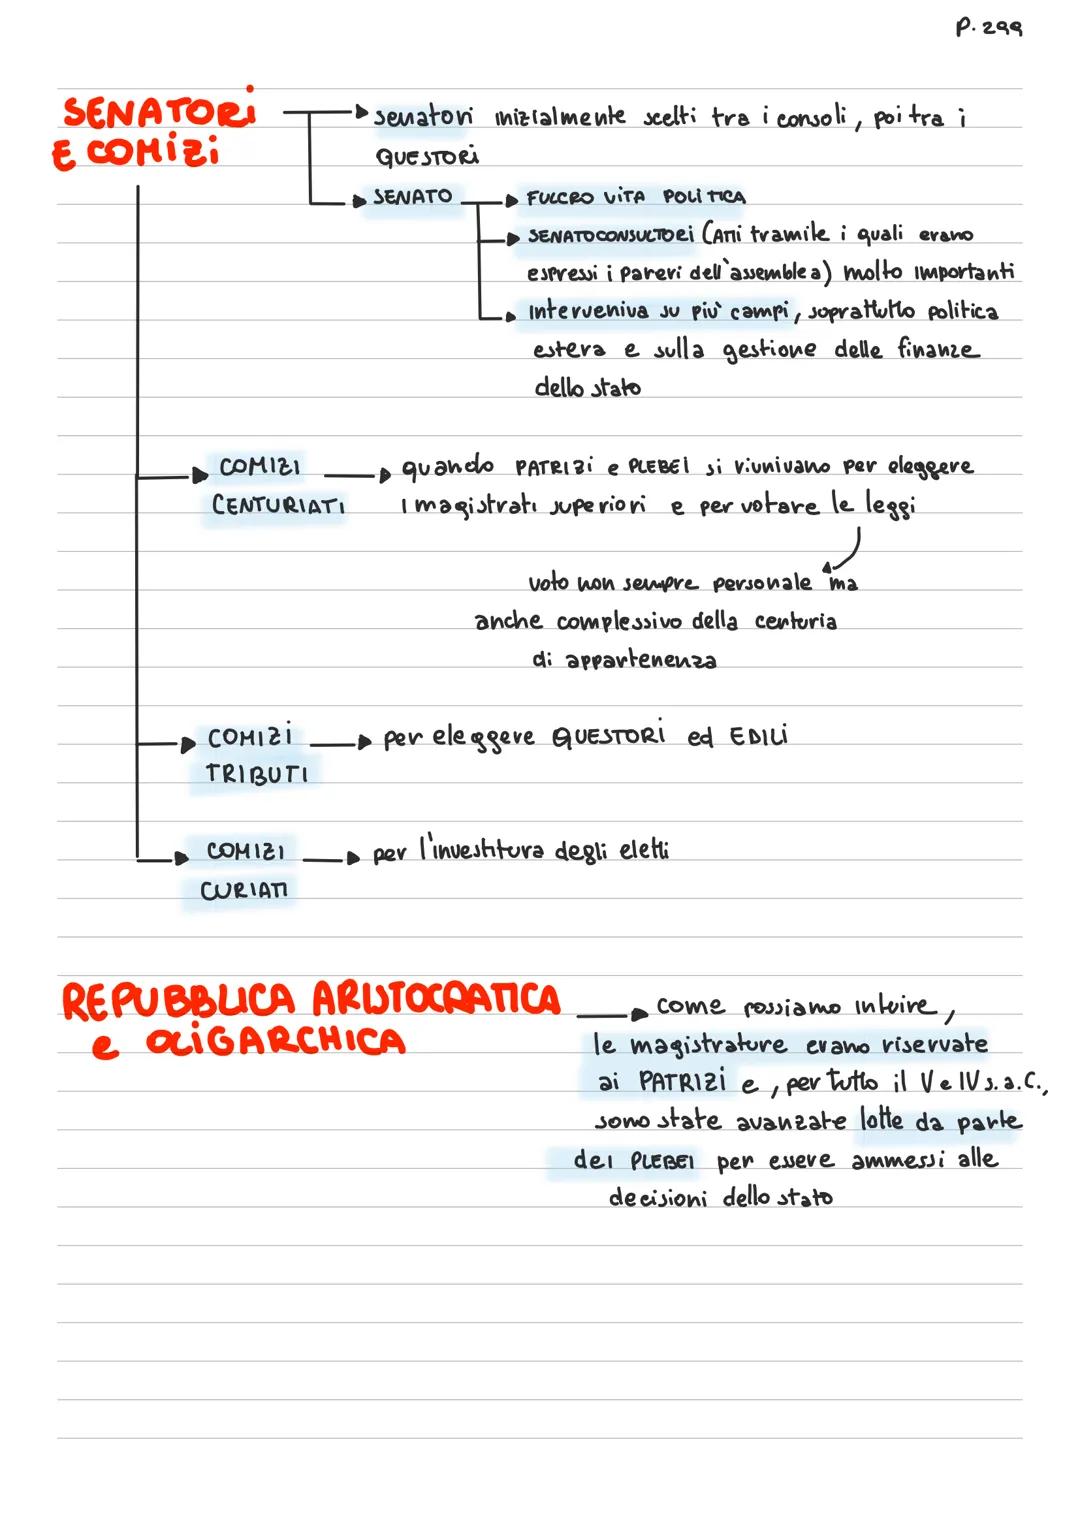 P. 299
SENATORI
E COMIZI
senatori inizialmente scelti tra i consoli, poi tra i
QUESTORI
SENATO
FULCRO VITA POLITICA
SENATOCONSULTORI (Atti tramite i quali erano
espressi i pareri dell'assemblea) molto importanti
Interveniva su più campi, soprattutto politica
estera e sulla gestione delle finanze
dello stato
COMIZI
CENTURIATI
quando PATRIZI e PLEBEI si riunivano per eleggere
I magistrati superiori e per votare le leggi
voto non sempre personale ma
anche complessivo della centuria
di appartenenza
COMIZI
TRIBUTI
per eleggere QUESTORI ed EDILI
COMIZI
CURIATI
per l'investitura degli eletti
REPUBBLICA ARISTOCRATICA
e OLIGARCHICA
come possiamo intuire,
le magistrature erano riservate
ai PATRIZI e, per tutto il V e IV s. a.C.,
sono state avanzate lotte da parte
dei PLEBEI per essere ammessi alle
decisioni dello stato